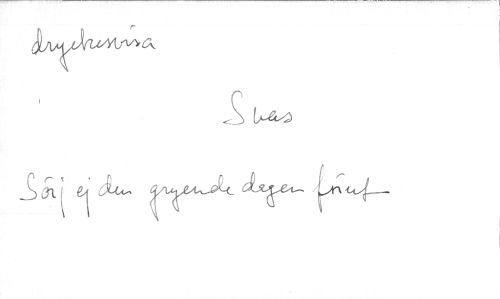 dryckesvisa
Svas
Sörj ej den gryende dagen förut